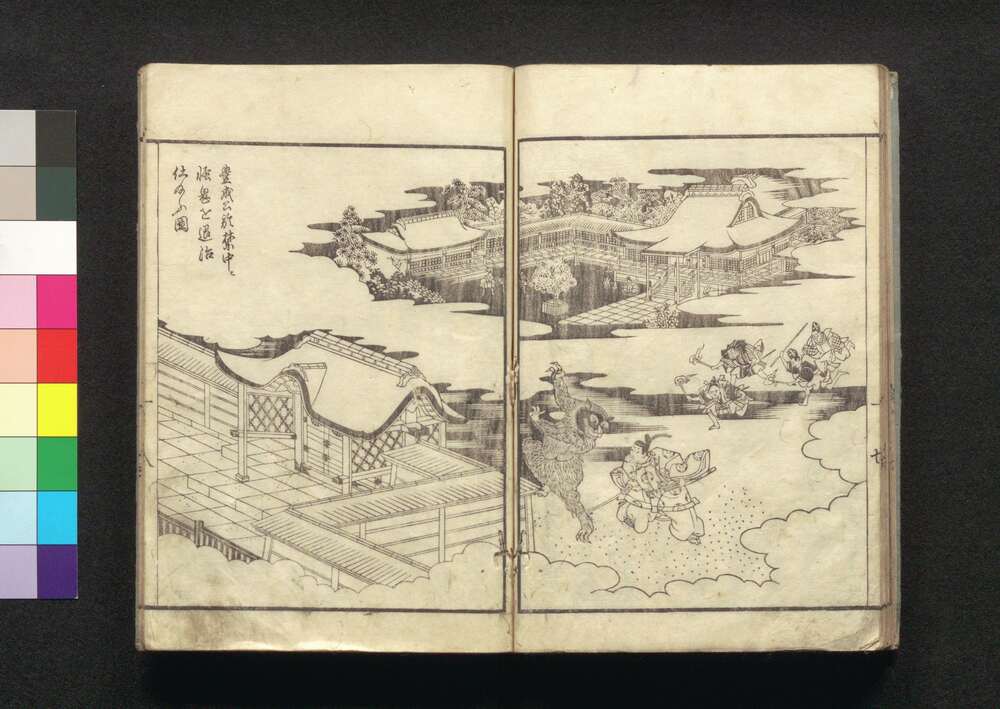 豊成公於禁中に
怪鬼を退治
仕給ふ図
十七